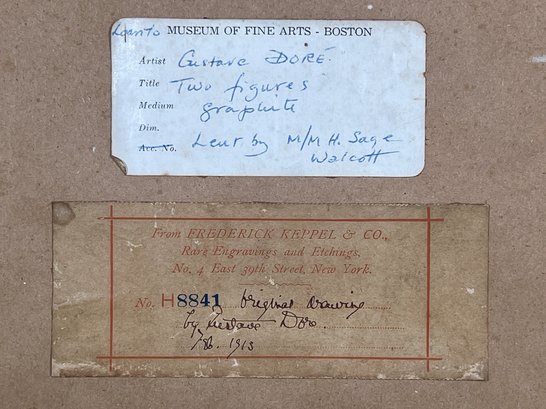 Loan to MUSEUM OF FINE ARTS - BOSTON
Artist Gustave DORÉ.
Title Two figures
Medium graphite
Dim.
Acc. No. Lent by M/M H. Sage
Walcott
From FREDERICK KEPPEL & CO.,
Rare Engravings and Etchings,
No. 4 East 39th Street, New York.
No. H8841 Original drawing
by Gustave Doré.
Feb. 1913